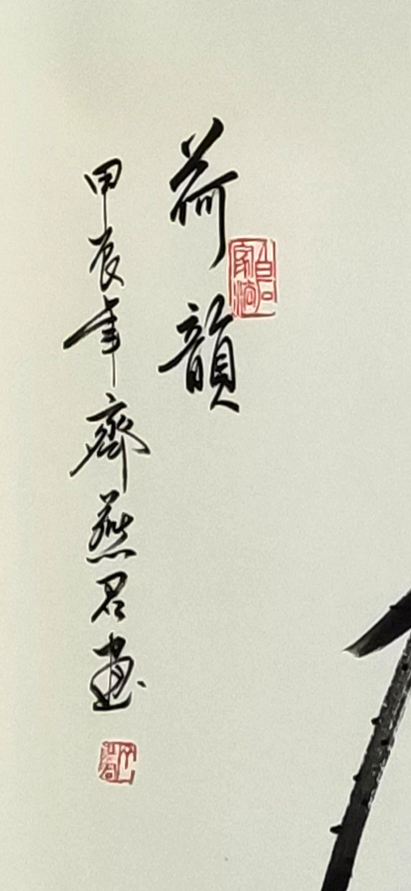 荷韻
甲辰年齊燕君畫